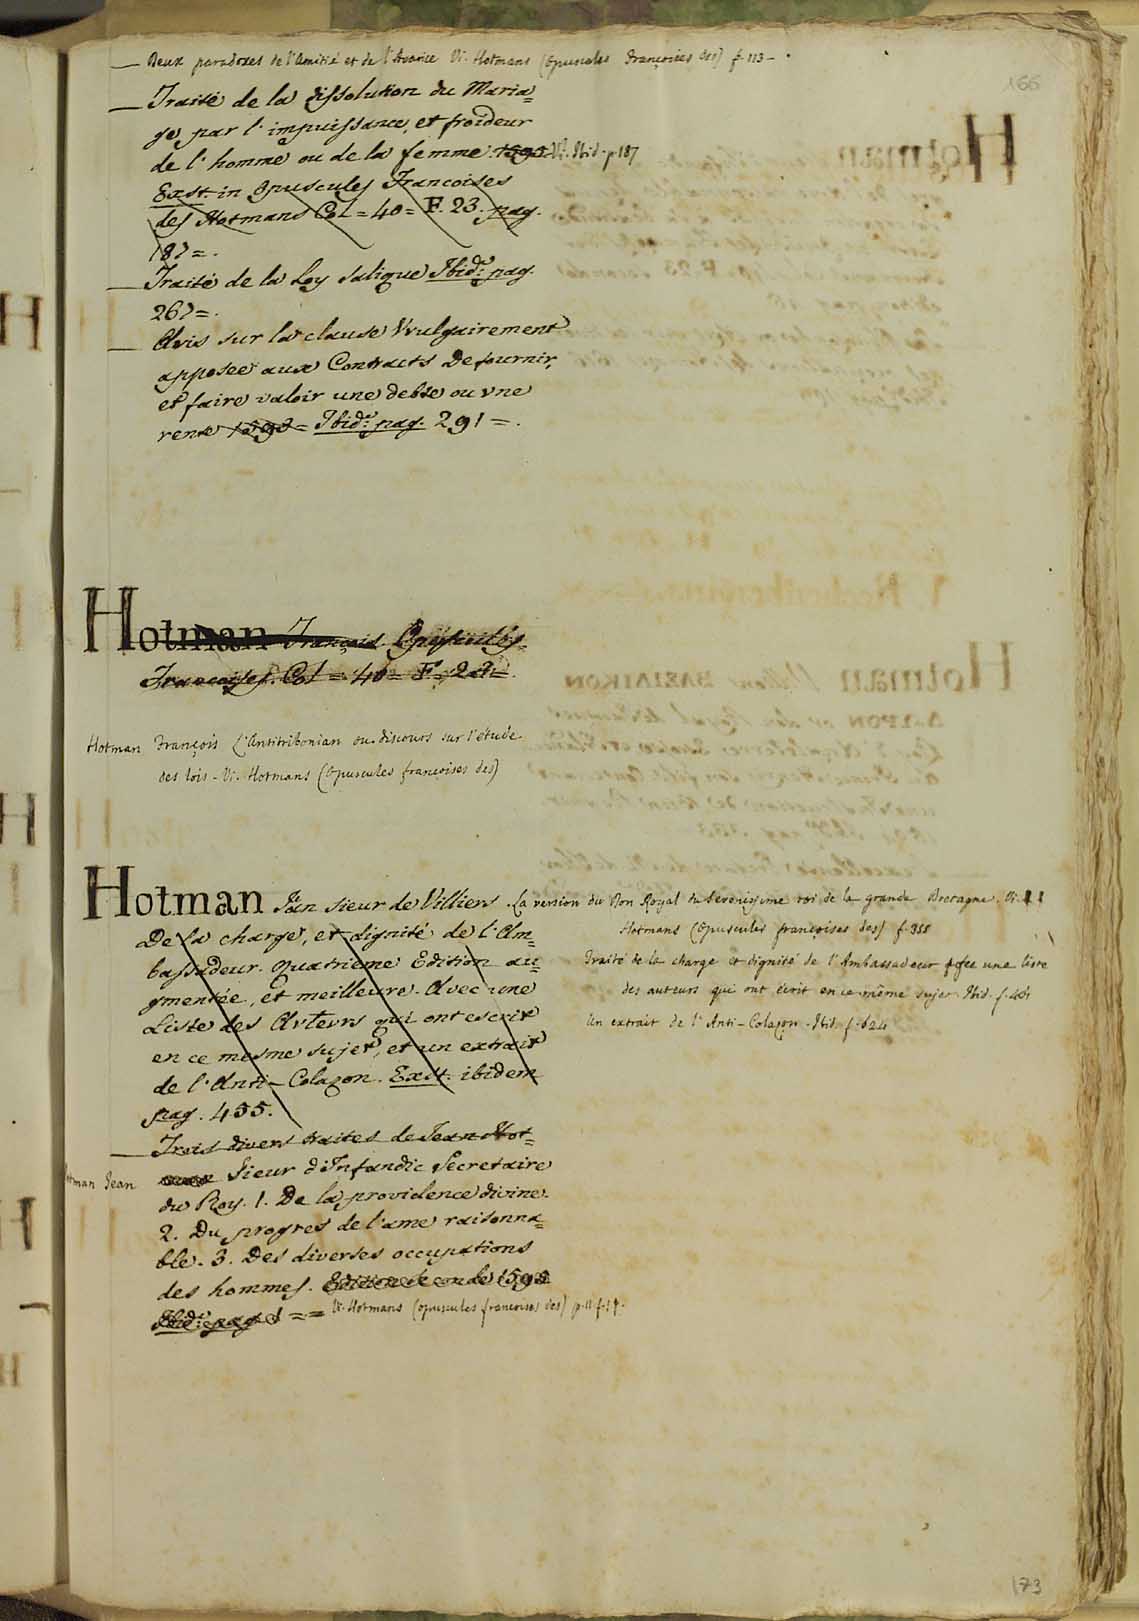 166
— Deux paradoxes de l'Amitié et de l'Avarice Vi. Hotmans (Opuscules Françoises des) f. 113 -
— Traité de la dissolution du Maria=
ge, par l'impuissance, et froideur
de l'homme ou de la femme. 1595 Vi. Ibid. p. 187
Exst. in Opuscules Francoises
des Hotmans Col = 40 = F. 23. pag.
187 = .
— Traité de la Loy Salique Ibid.e pag.
267 = .
— Avis sur la clause Vvulgairement
apposée aux Contracts De fournir,
et faire valoir une debte ou vne
rente 1593 = Ibid.e pag. 291 = .
Hotman François Opuscules
Francoises. Col = 40 = F. 23 = .
Hotman François L'Antitribonian ou discours sur l'étude
des lois - Vi. Hotmans (Opuscules françoises des)
Hotman Jan sieur de Villiers. La version du Don Royal du Serenissime roi de la grande Bretagne. Vi.
Hotmans (Opuscules françoises des) f. 355
De la charge, et dignité de l'Am=
bassadeur. Quatrieme Edition au=
gmentée, et meilleure. Avec une
Liste des Avtevrs qui ont escrit
en ce mesme sujet, et un extrait
de l'Anti-Colazon. Exst. ibidem
pag. 455.
Traité de la charge et dignité de l'Ambassadeur avec une liste
des auteurs qui ont écrit en ce même sujet. Ibid. f.
Un extrait de l'Anti-Colazon. Ibid. f. 624
— Trois divers traites de Jean Hot=
man Sieur d'Infandic Secretaire
Hotman Jean
du Roy. 1. De la providence divine.
2. Du progres de l'ame raisonna=
ble. 3. Des diverses occupations
des hommes. Edition seconde 1595
Ibid.e pag 1 = = Vi. Hotmans (opuscules francoises des) p. II f. 1
173